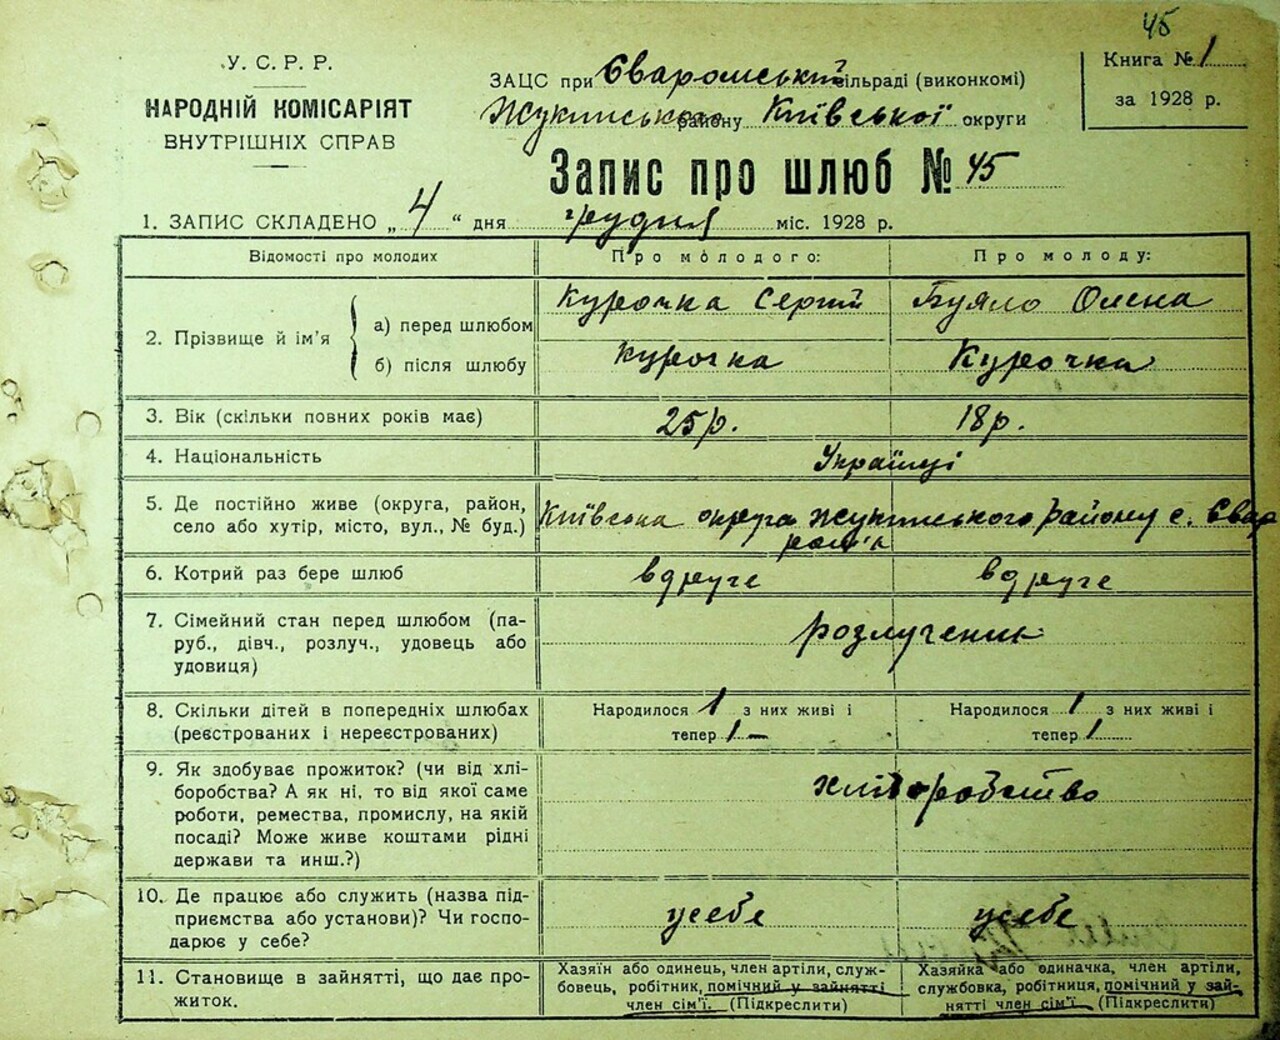 45
У. С. Р. Р.
НАРОДНІЙ КОМІСАРІЯТ
ВНУТРІШНІХ СПРАВ
ЗАЦС при Єваромській сільраді (виконкомі)
Жукинського району Київської округи
Книга № 1
за 1928 р.
Запис про шлюб № 45
1. ЗАПИС СКЛАДЕНО „ 4 “ дня грудня міс. 1928 р.
Відомості про молодих
Про молодого:
Про молоду:
2. Прізвище й ім'я
а) перед шлюбом
Курочка Сергій
Буяло Олена
б) після шлюбу
Курочка
Курочка
3. Вік (скільки повних років має)
25 р.
18 р.
4. Національність
Українці
5. Де постійно живе (округа, район,
село або хутір, місто, вул., № буд.)
Київська округа Жукинського району с. Євар
6. Котрий раз бере шлюб
вдруге
вдруге
7. Сімейний стан перед шлюбом (па-
руб., дівч., розлуч., удовець або
удовиця)
розлученик
8. Скільки дітей в попередніх шлюбах
(реєстрованих і нереєстрованих)
Народилося 1 з них живі і
тепер 1 –
Народилося 1 з них живі і
тепер 1
9. Як здобуває прожиток? (чи від хлі-
боробства? А як ні, то від якої саме
роботи, ремества, промислу, на якій
посаді? Може живе коштами рідні
держави та инш.?)
хліборобство
10. Де працює або служить (назва під-
приємства або установи)? Чи госпо-
дарює у себе?
усебе
усебе
11. Становище в зайнятті, що дає про-
житок.
Хазяїн або одинець, член артілі, служ-
бовець, робітник, помічний у зайнятті
член сім'ї. (Підкреслити)
Хазяйка або одиначка, член артілі,
службовка, робітниця, помічний у зай-
нятті член сім'ї. (Підкреслити)